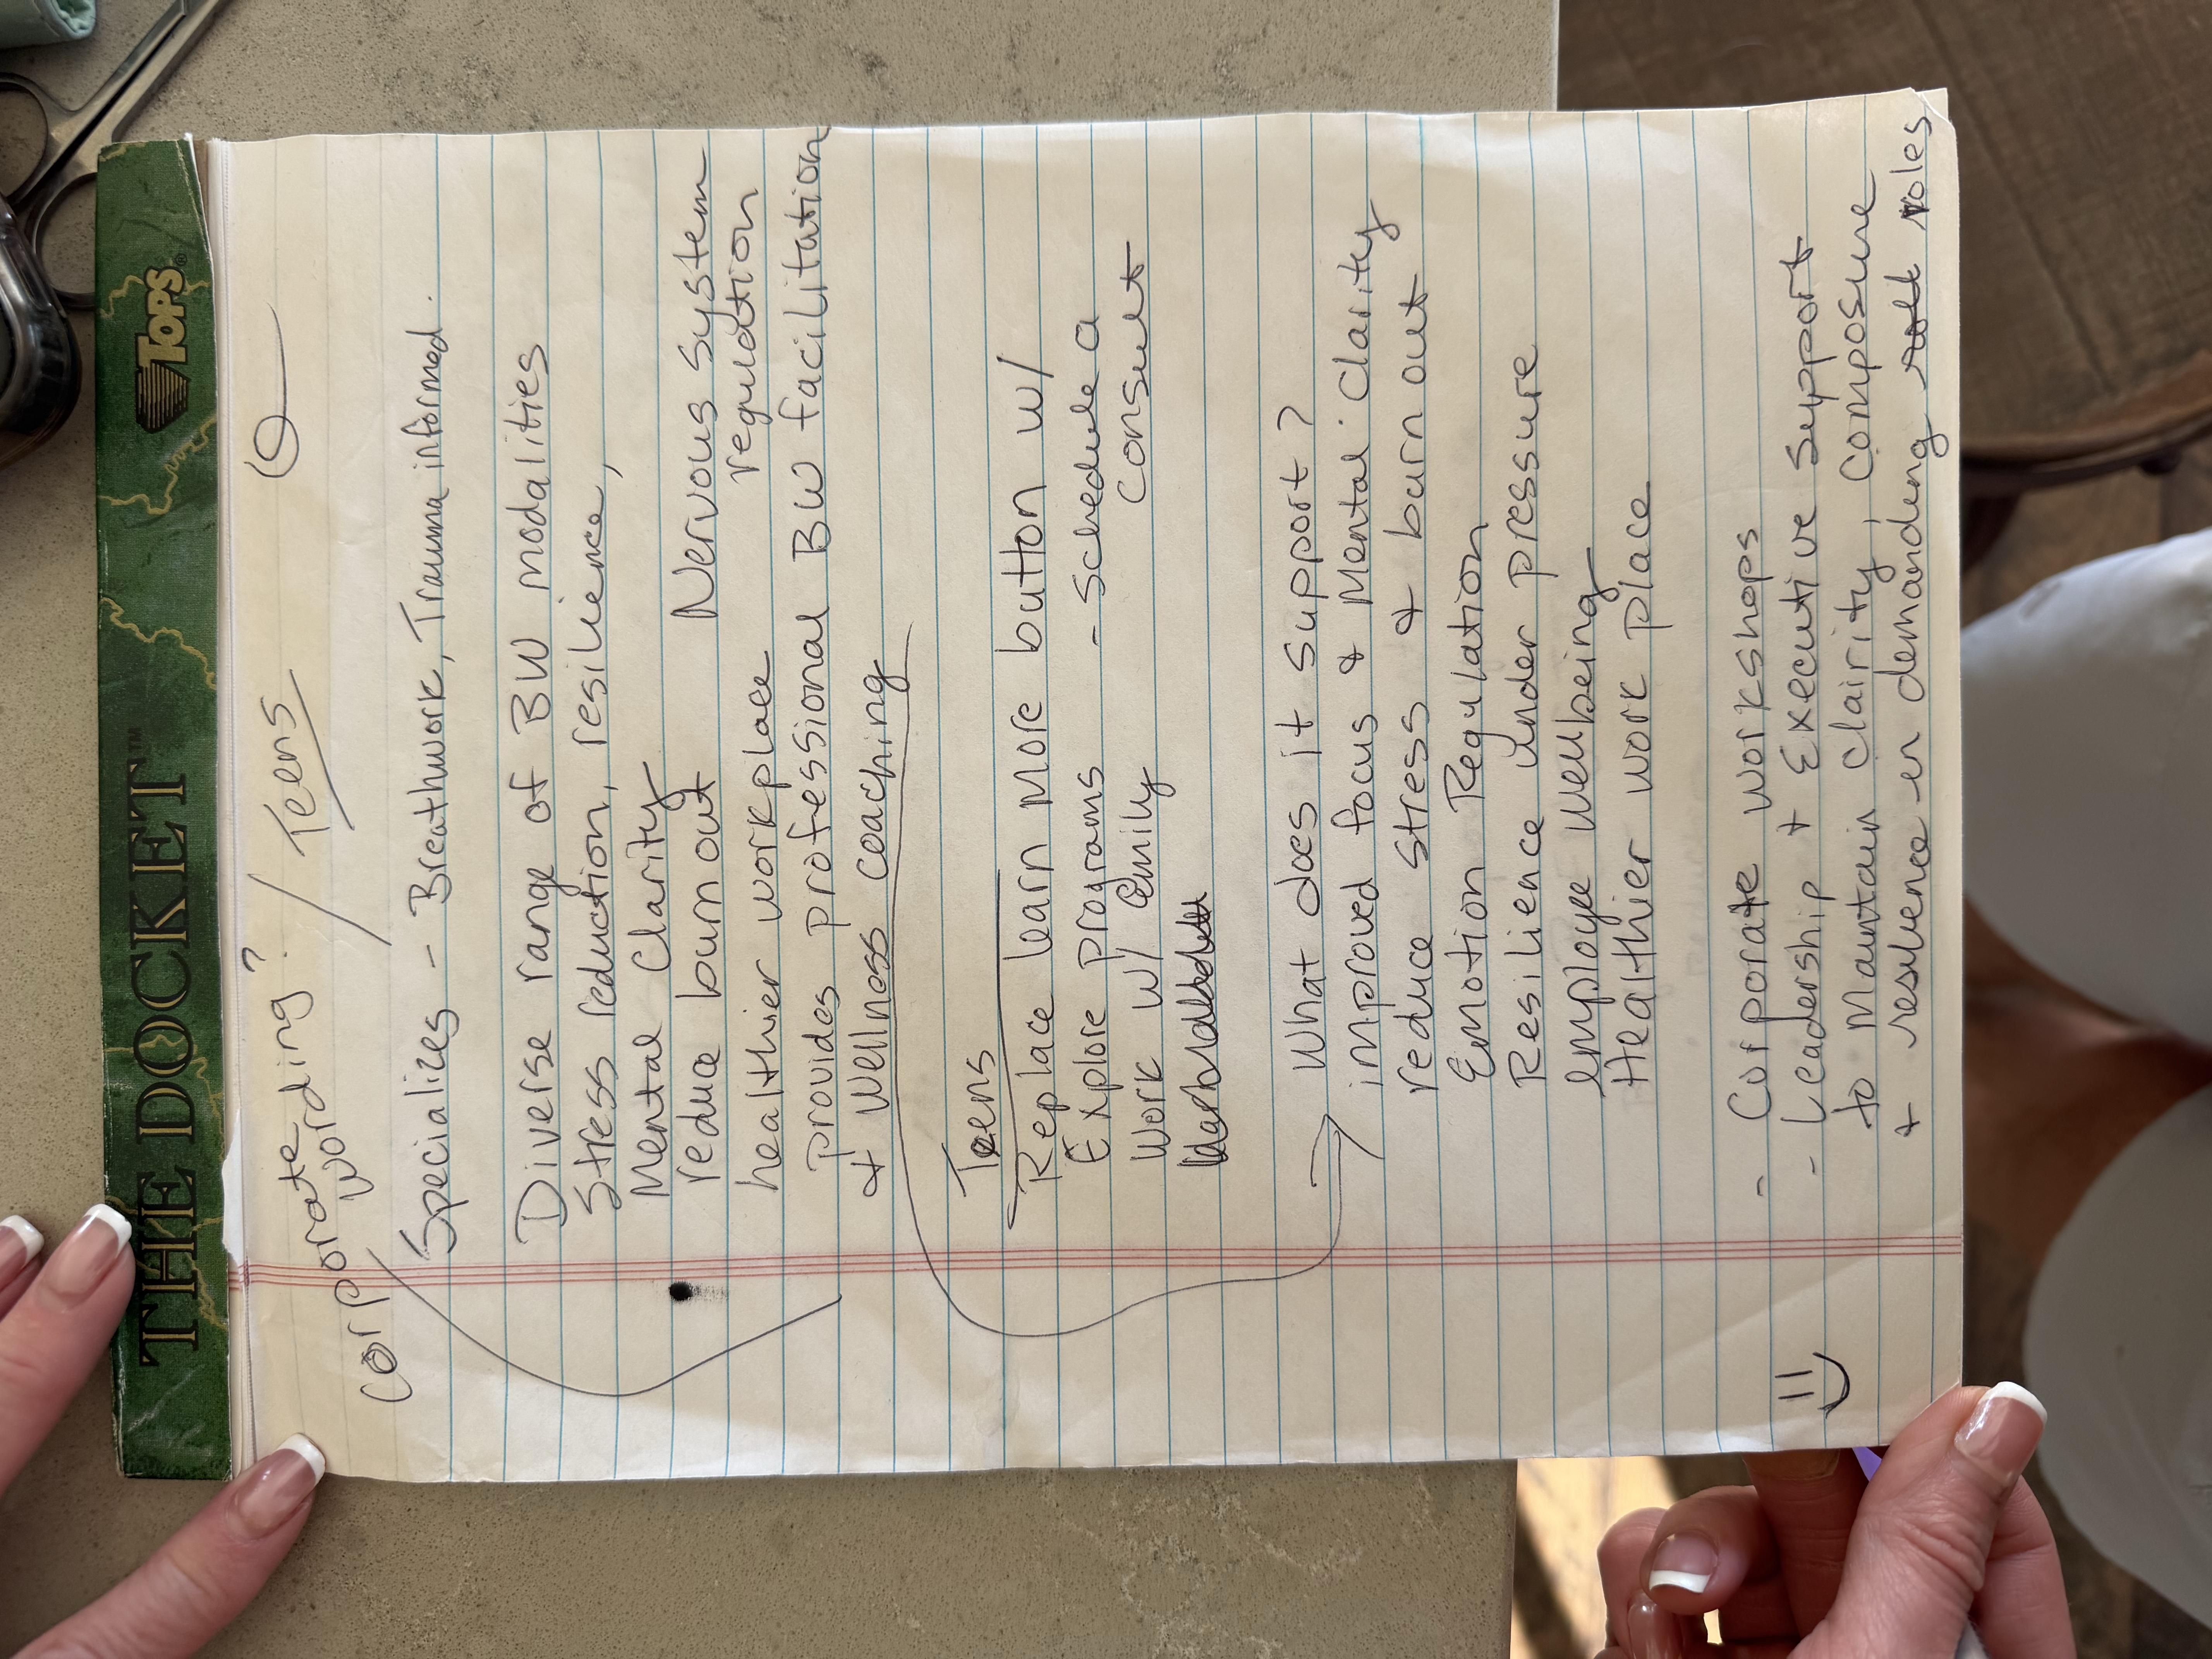 THE DOCKET™ TOPS®
Corporate / Teens
wording?
Specializes - Breathwork, Trauma informed.
Diverse range of BW modalities
Stress reduction, resilience,
Mental Clarity
reduce burn out Nervous System
regulation
healthier workplace
provides professional BW facilitation
+ Wellness coaching
Teens
Replace learn more button w/
Explore programs - schedule a
Work w/ Emily consult
What does it support?
improved focus & Mental Clarity
reduce stress & burn out
Emotion Regulation
Resilience under pressure
employee wellbeing
Healthier work place
- Corporate workshops
- Leadership + Executive Support
to Maintain clairity, composure
+ resilience in demanding roles